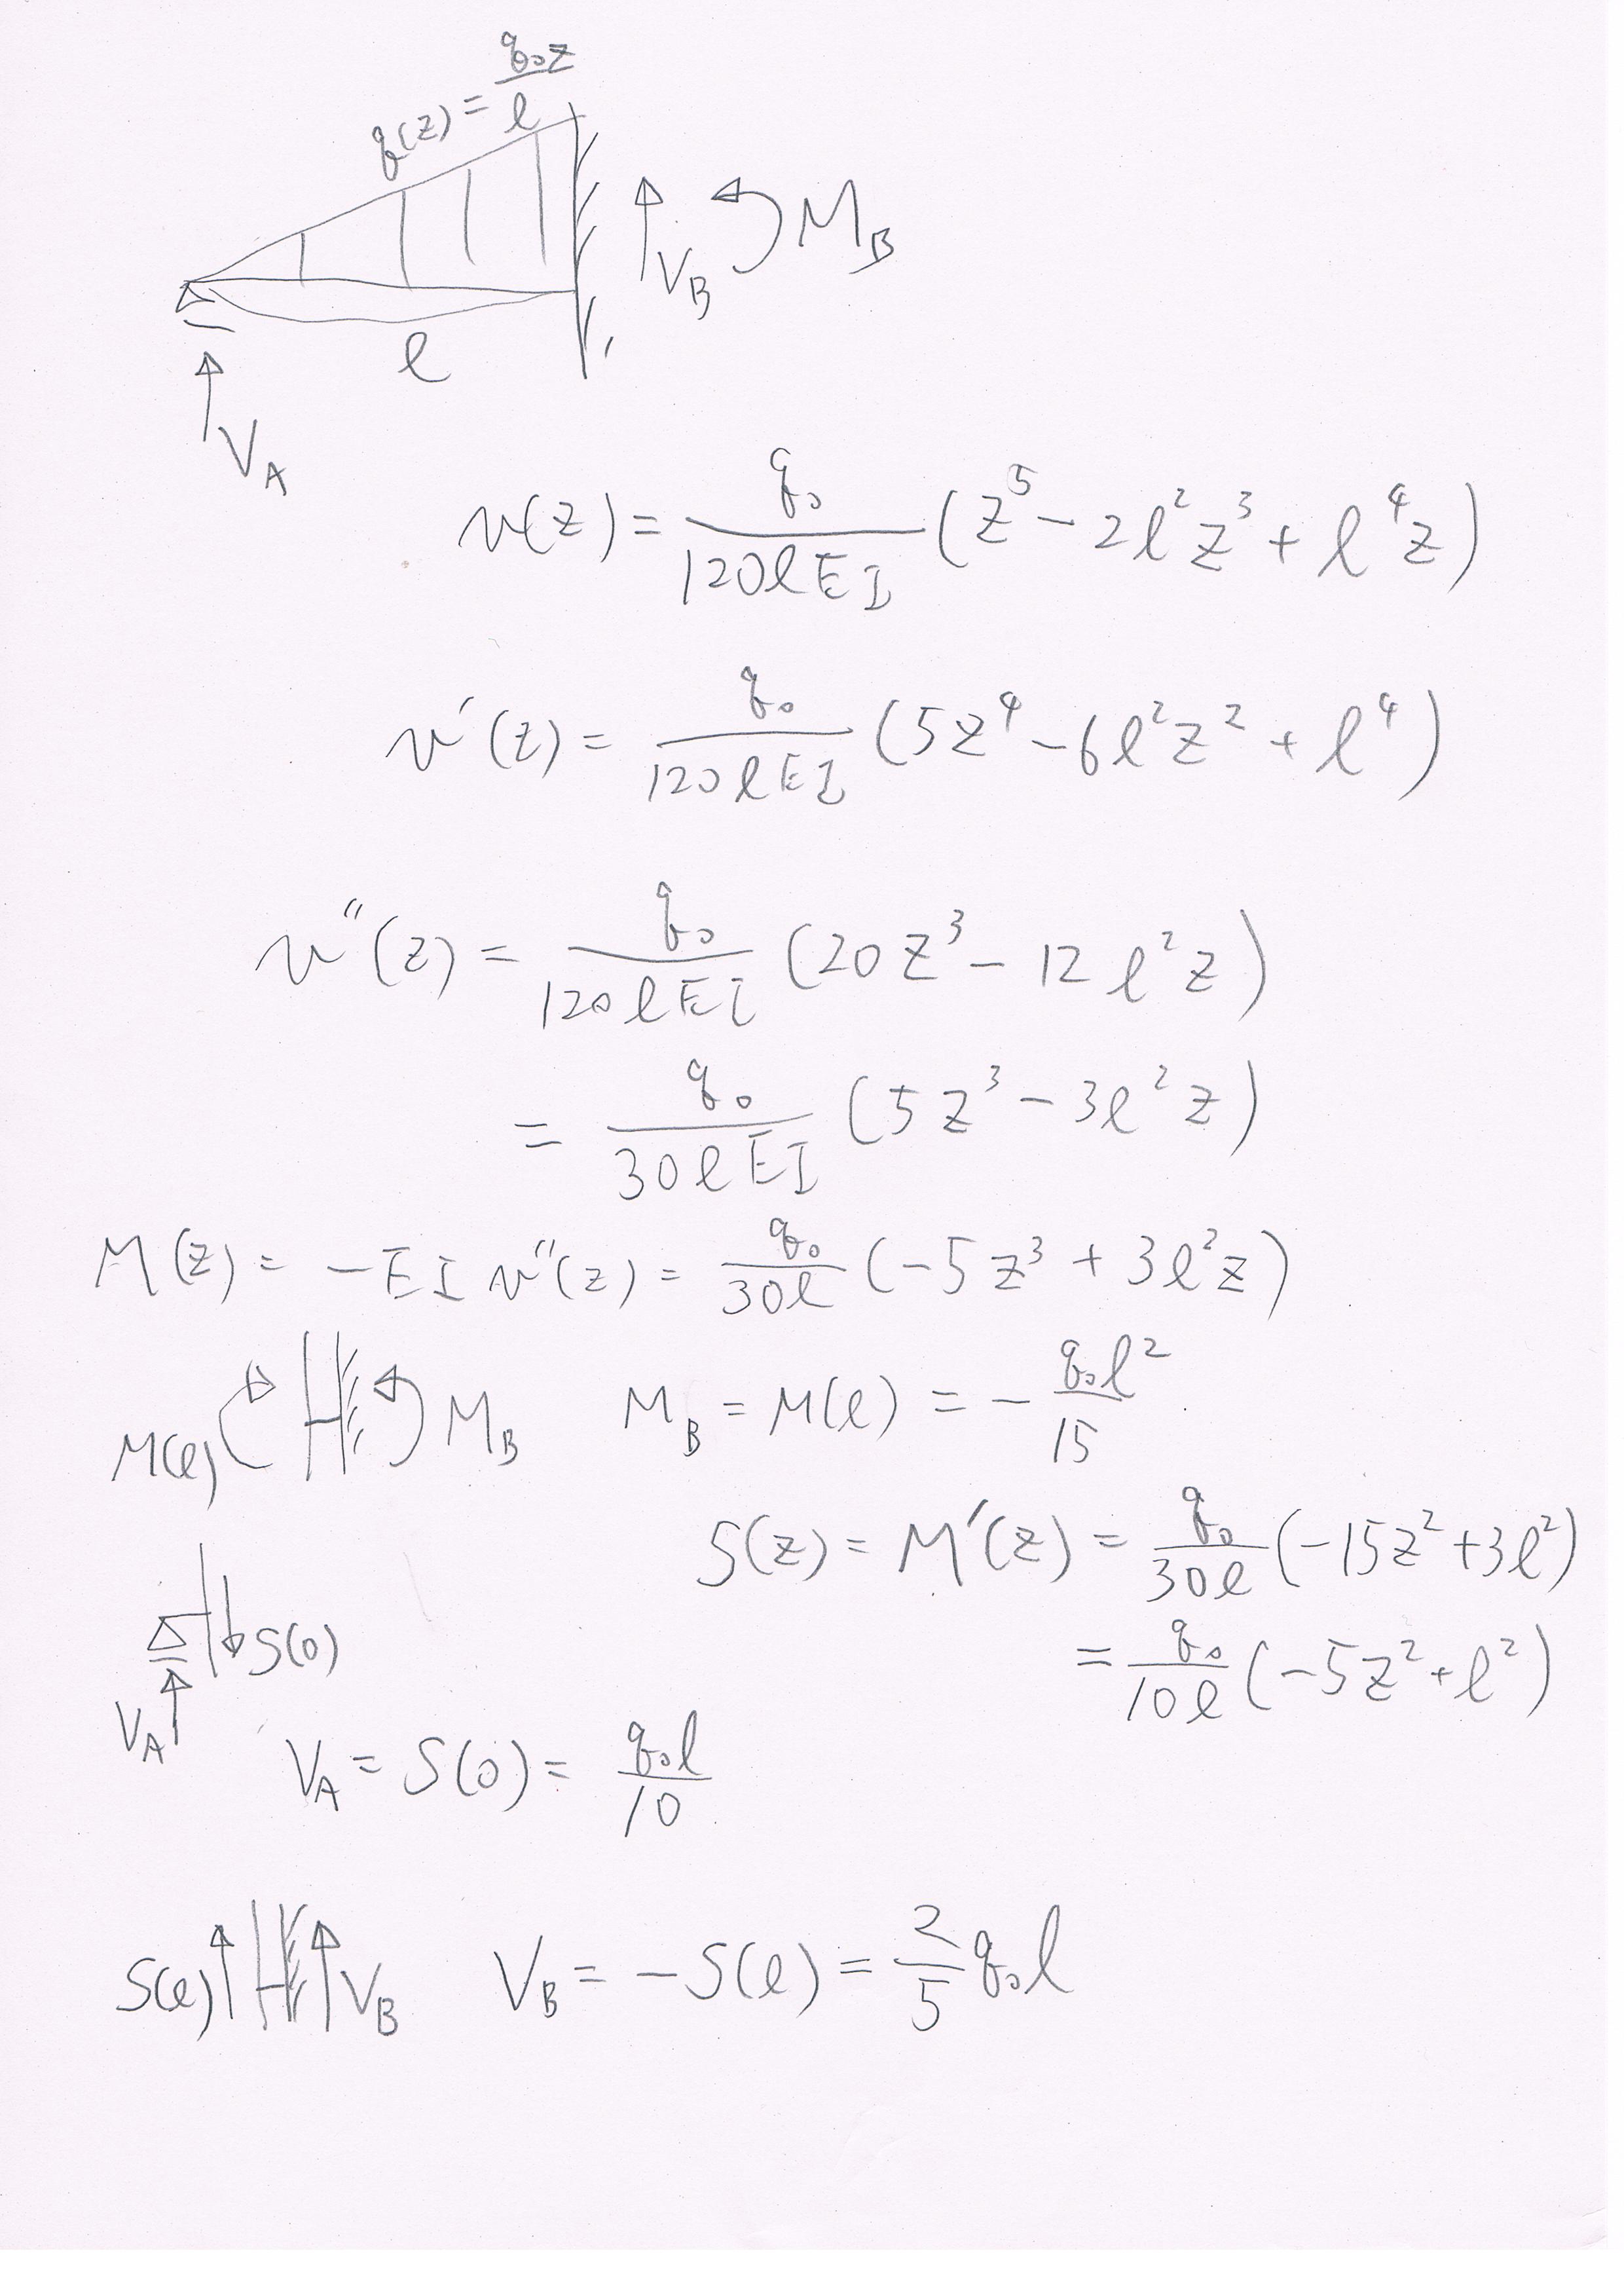 q(z) = q₀z / l
V_B M_B
l
V_A
v(z) = q₀ / 120lEI (z⁵ - 2l²z³ + l⁴z)
v′(z) = q₀ / 120lEI (5z⁴ - 6l²z² + l⁴)
v″(z) = q₀ / 120lEI (20z³ - 12l²z)
= q₀ / 30lEI (5z³ - 3l²z)
M(z) = -EIv″(z) = q₀ / 30l (-5z³ + 3l²z)
M(l) M_B M_B = M(l) = - q₀l² / 15
S(z) = M′(z) = q₀ / 30l (-15z² + 3l²)
S(0) = q₀ / 10l (-5z² + l²)
V_A
V_A = S(0) = q₀l / 10
S(l) V_B V_B = -S(l) = 2/5 q₀l